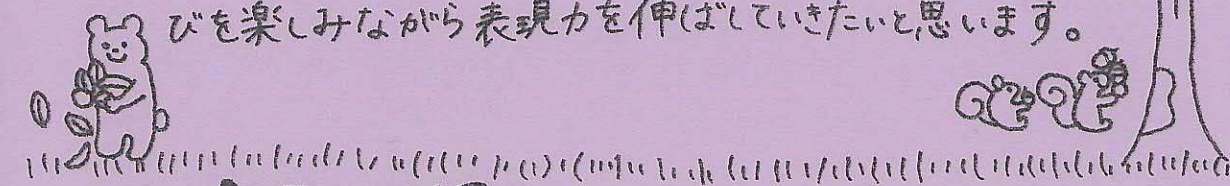 びを楽しみながら表現力を伸ばしていきたいと思います。